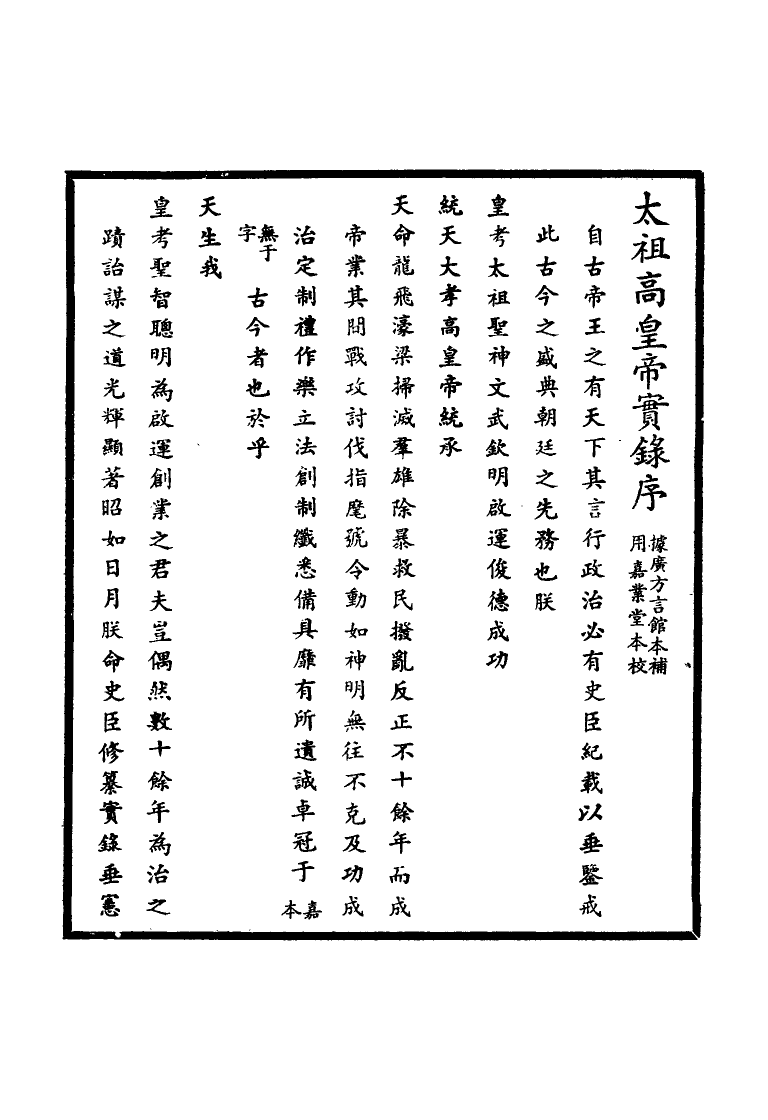 太祖高皇帝實錄序 據廣方言館本補用嘉業堂本校
自古帝王之有天下其言行政治必有史臣紀載以垂鑒戒
此古今之盛典朝廷之先務也朕
皇考太祖聖神文武欽明啟運俊德成功
統天大孝高皇帝統承
天命龍飛濠梁掃滅羣雄除暴救民撥亂反正不十餘年而成
帝業其間戰攻討伐指麾號令動如神明無往不克及功成
治定制禮作樂立法創制纖悉備具靡有所遺誠卓冠于 嘉本
無于字 古今者也於乎
天生我
皇考聖智聰明為啟運創業之君夫豈偶然數十餘年為治之
蹟詒謀之道光輝顯著昭如日月朕命史臣修纂實錄垂憲